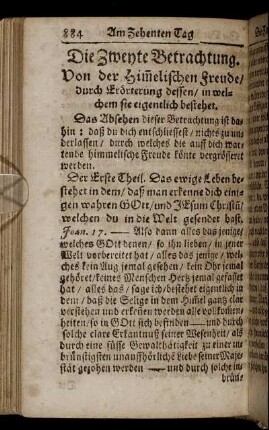 884 Am Zehenten Tag
Die Zweyte Betrachtung.
Von der Him̃elischen Freude/
durch Erörterung dessen/ in wel-
chem sie eigentlich bestehet.
Das Absehen dieser Betrachtung ist da-
hin: daß du dich entschliessest/ nichts zu un-
derlassen/ durch welches die auff dich war-
tende himmelische Freude könte vergrössert
werden.
Der Erste Theil. Das ewige Leben be-
stehet in dem/ daß man erkenne dich eini-
gen wahren GOtt/ und JEsum Christũ/
welchen du in die Welt gesendet hast.
Joan. 17. — Also dann alles das jenige/
welches GOtt denen/ so ihn lieben/ in jener
Welt vorbereitet hat/ alles das jenige/ wel-
ches kein Aug jemal gesehen/ kein Ohr jemal
gehöret/ keines Menschen Hertz jemal gefasset
hat/ alles das/ sage ich/ bestehet eigentlich in
dem/ daß die Selige in dem Him̃el gantz clar
verstehen und erkennen werden alle vollkom̃en-
heiten/ so in GOtt sich befinden — und durch
solche clare Erkantnuß seiner Wesenheit/ als
durch eine süsse Gewalthätigkeit zu einer in-
brünstigsten unauffhörliche Liebe seiner Maje-
stät gezohen werden — und durch solche in-
brün-